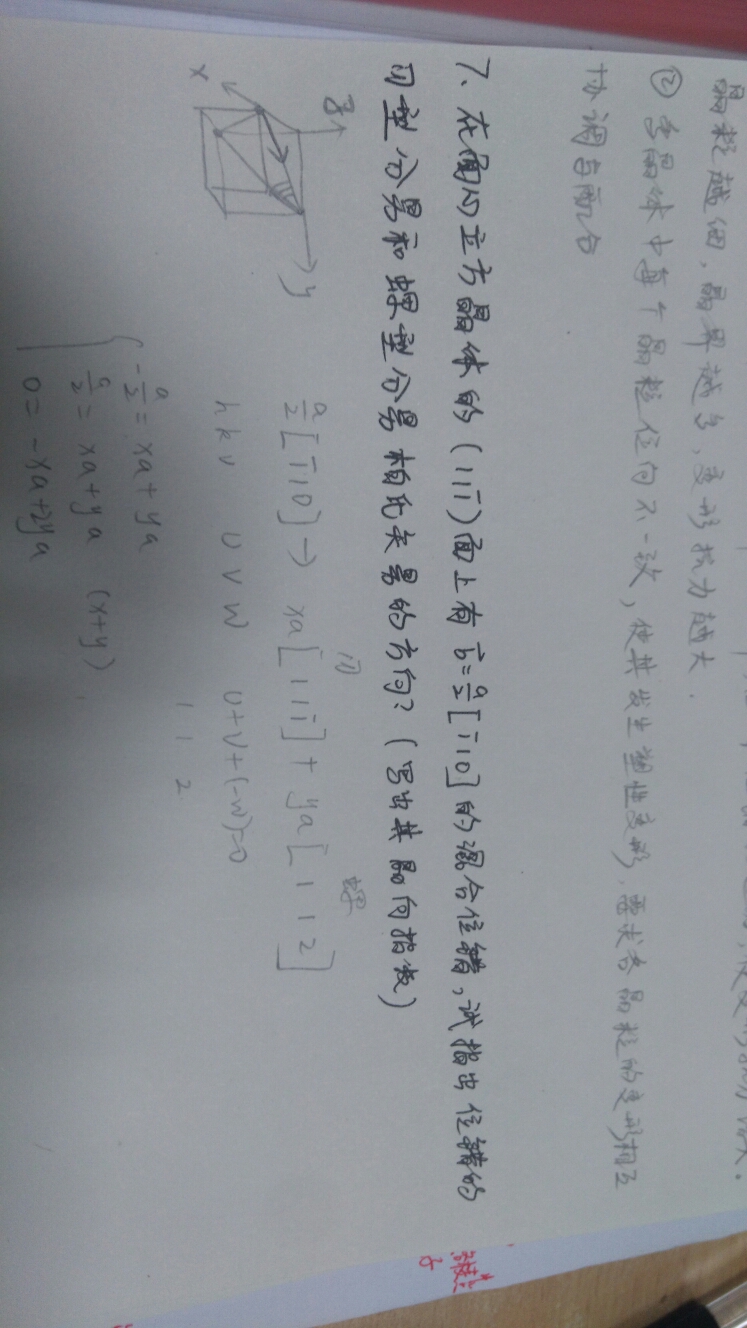 晶粒越细，晶界越多，变形抗力越大.
② 多晶体中每个晶粒位向不一致，使其发生塑性变形，需求各晶粒的变形相互
协调与配合
7、在面心立方晶体的(11ī)面上有b⃗=a/2[ī10]的混合位错，试指出位错的
刃型分量和螺型分量柏氏矢量的方向？(写出其晶向指数)
z
x
y
刃 螺
a/2[ī10]→ xa[11ī]+ya[112]
h k v u v w u+v+(-w)=0
1 1 2
-a/2=xa+ya
a/2=xa+ya (x+y)
0=-xa+2ya